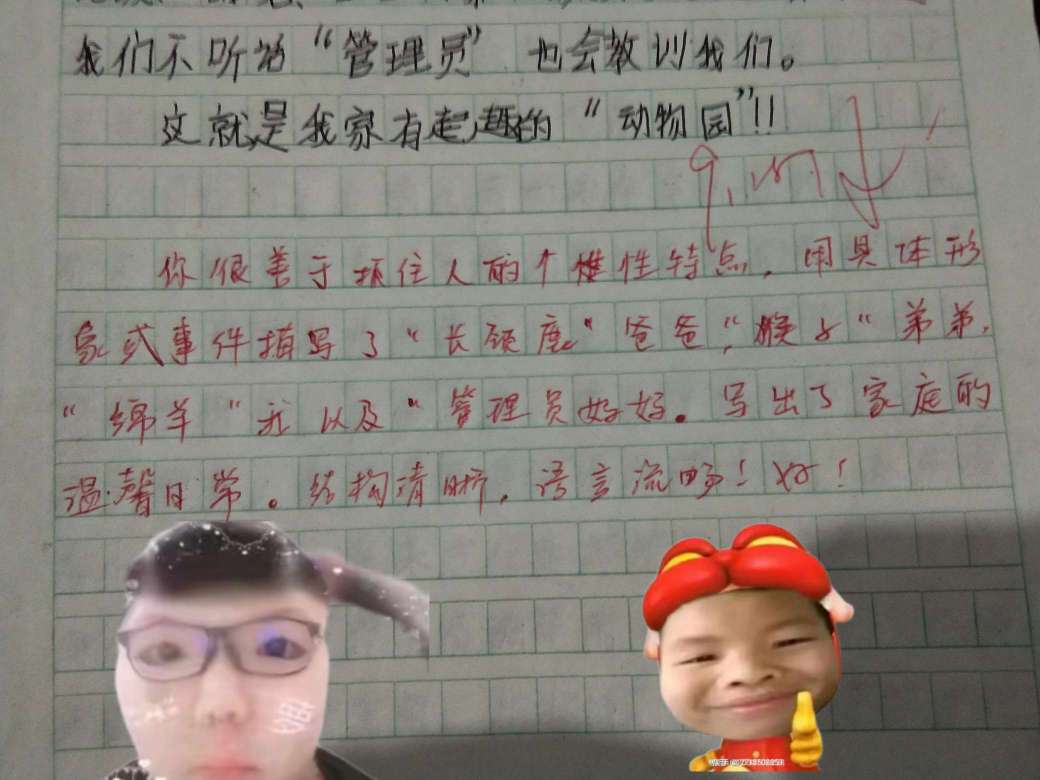 我们不听话“管理员”也会教训我们。
这就是我家有起趣的“动物园”!!
你很善于抓住人的个性特点，用具体形
象或事件描写了“长颈鹿”爸爸，“猴子”弟弟，
“绵羊”我以及“管理员妈妈。写出了家庭的
温馨日常。结构清晰，语言流畅！好！